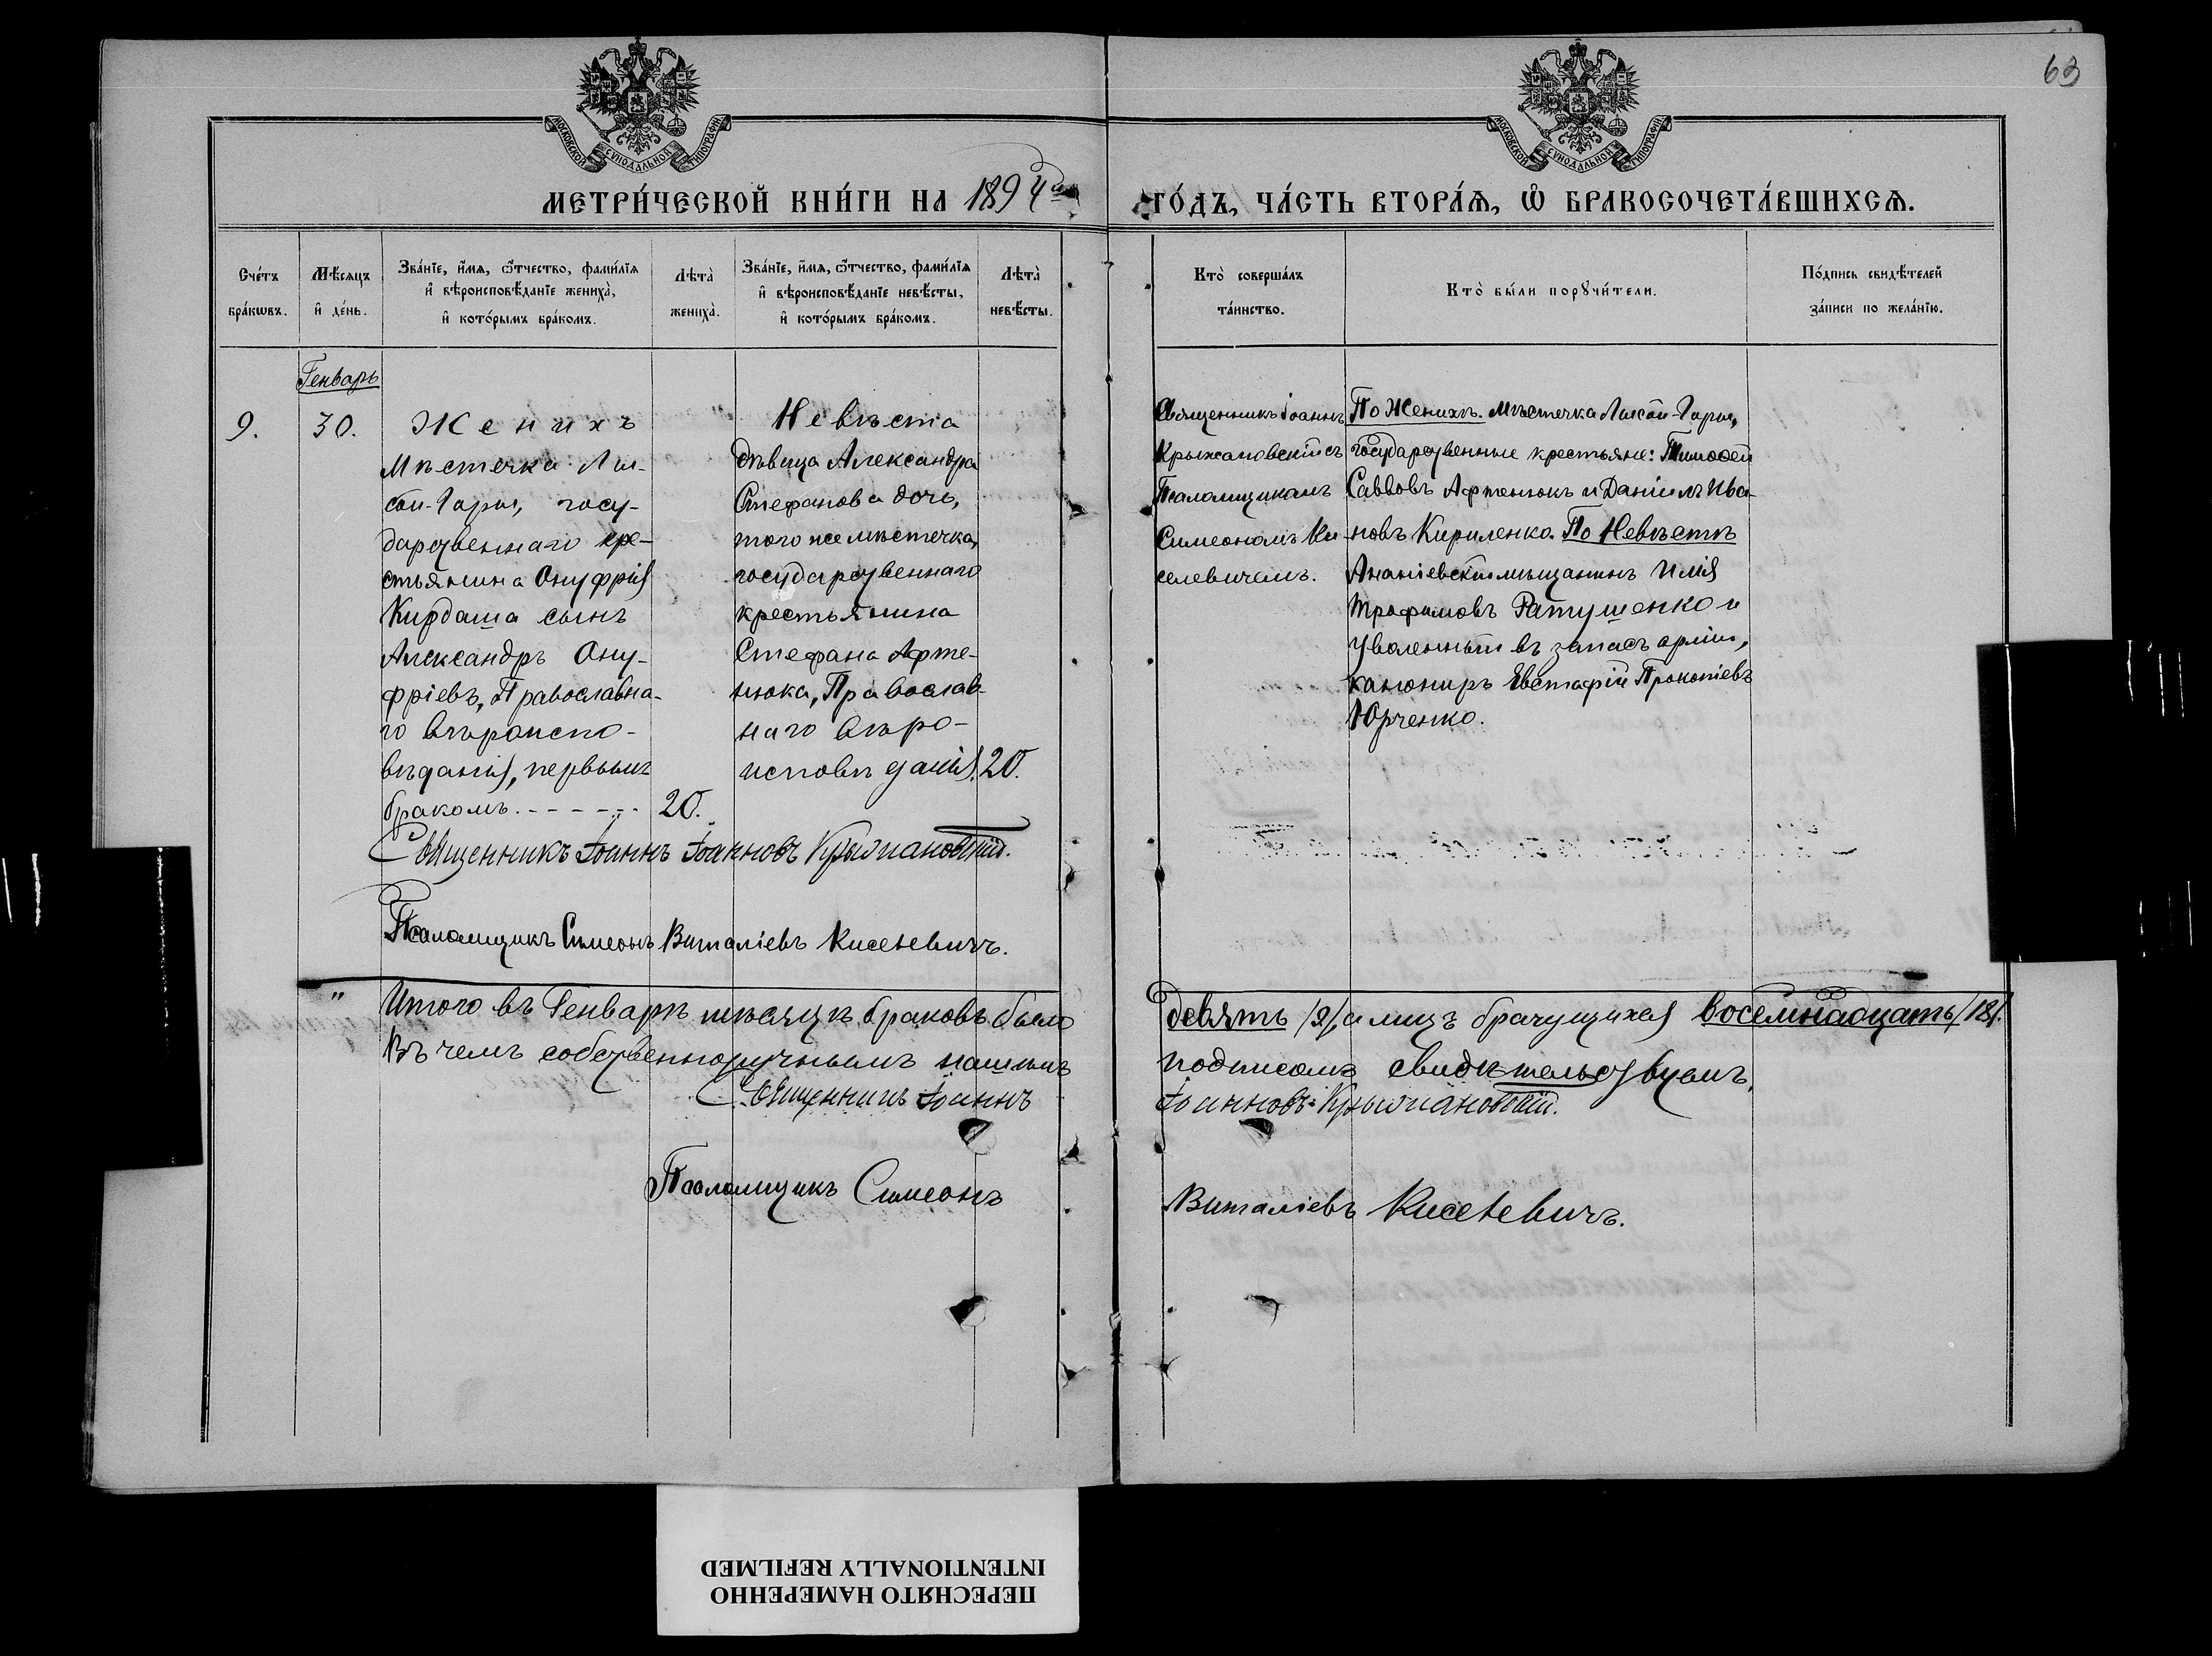 63
МОСКОВСКОЙ СѴНОДАЛЬНОЙ ТИПОГРАФІИ
МОСКОВСКОЙ СѴНОДАЛЬНОЙ ТИПОГРАФІИ
МЕТРИ́ЧЕСКОЙ КНИ́ГИ НА 1894й
ГО́ДЪ, ЧА́СТЬ ВТОРА́Ѧ, Ѽ БРАКОСОЧЕТА́ВШИХСѦ.
Сче́тъ бра́кѡвъ.
Мѣ́сяцъ и҆ де́нь.
Зва́нїе, и҆́мѧ, ѻ҆́тчество, фами́лїѧ и҆ вѣроисповѣ́данїе жениха̀, и҆ кото́рымъ бра́комъ.
Лѣта̀ жениха̀.
Зва́нїе, и҆́мѧ, ѻ҆́тчество, фами́лїѧ и҆ вѣроисповѣ́данїе невѣ́сты, и҆ кото́рымъ бра́комъ.
Лѣта̀ невѣ́сты.
Кто̀ соверша́лъ та́инство.
Кто̀ бы́ли порꙋчи́тели.
По́дпись свидѣ́телей за́писи по жела́нїю.
Генварь
9.
30.
Женихъ
Мѣстечка Лы-
сой-Горы, госу-
дарственнаго кре-
стьянина Онуфрія
Кирдаша сынъ
Александръ Ону-
фріевъ, Православна-
го вѣроиспо-
вѣданія, первымъ
бракомъ.
20.
Невѣста
дѣвица Александра
Стефанова дочь,
того же мѣстечка,
государственнаго
крестьянина
Стефана Афте-
нюка, Православ-
наго вѣро-
исповѣданія.
20.
Священникъ Іоаннъ
Крыжановскій съ
Псаломщикомъ
Симеономъ Ки-
селевичемъ.
По Женихѣ. Мѣстечка Лысой-Горы,
государственные крестьяне: Тимоѳей
Саввовъ Афтенюкъ и Даніилъ Ива-
новъ Кириленко. По Невѣстѣ
Ананіевскій мѣщанинъ Илія
Трофимовъ Ратушенко и
уволенный въ запасъ арміи,
канониръ Евстафій Прокопіевъ
Юрченко.
Священникъ Іоаннъ Іоанновъ Крыжановскій.
Псаломщикъ Симеонъ Виталіевъ Киселевичъ.
" Итого въ Генварѣ мѣсяцѣ браковъ было
девять /9/, а лицъ брачущихся восемнадцать /18/.
Въ чемъ собственноручнымъ нашимъ
подписомъ свидѣтельствуемъ.
Священникъ Іоаннъ
Іоанновъ Крыжановскій.
Псаломщикъ Симеонъ
Виталіевъ Киселевичъ.
ПЕРЕСНЯТО НАМЕРЕННО
INTENTIONALLY REFILMED